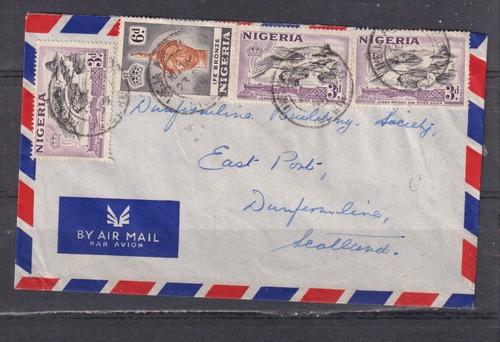 NIGERIA
3d
6d
IFE BRONZE
NIGERIA
NIGERIA
3d
NIGERIA
3d
Dunfermline Building Society,
East Port,
Dunfermline,
Scotland.
BY AIR MAIL
PAR AVION